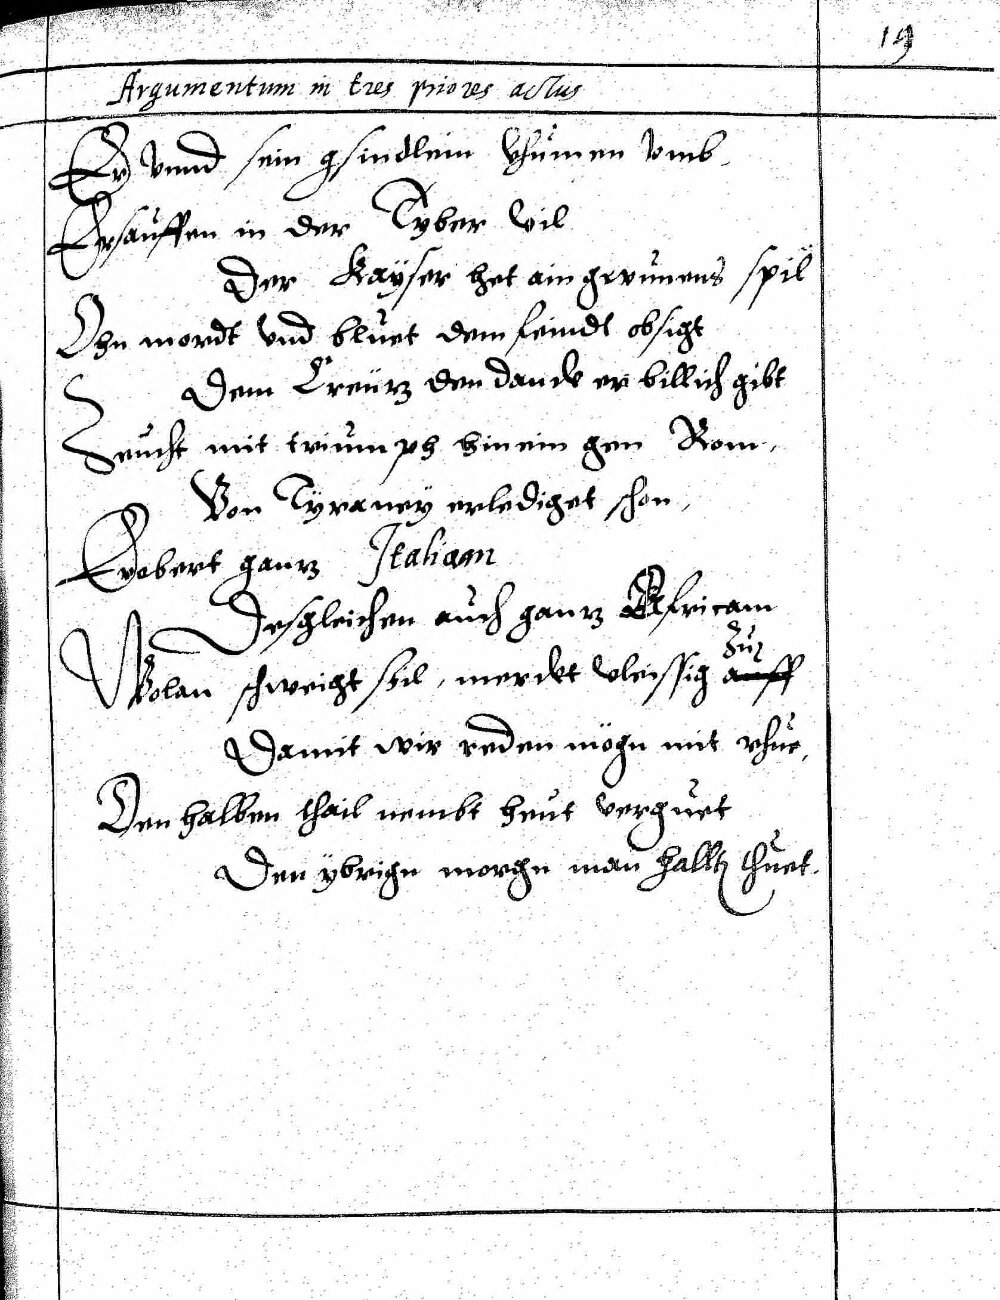 19
Argumentum in tres priores actus
Er vnnd sein gsindlein khumen vmb,
Ersauffen in der Tyber vil
Der Kayser het ain gwunens spil
Ohn mordt vnd bluet dem feindt obsigt
Dem Creutz den danck er billich gibt
Zeucht mit triumph hinein gen Rom,
Von Tyraney erlediget schon,
Erobert gantz Italiam
Desgleichen auch gantz Africam
Wolan schweigt stil, merckt vleissig auff zue
Damit wir reden mögn mit rhue,
Den halben thail nembt heut verguet
Den ybrign morgn man halltn thuet.